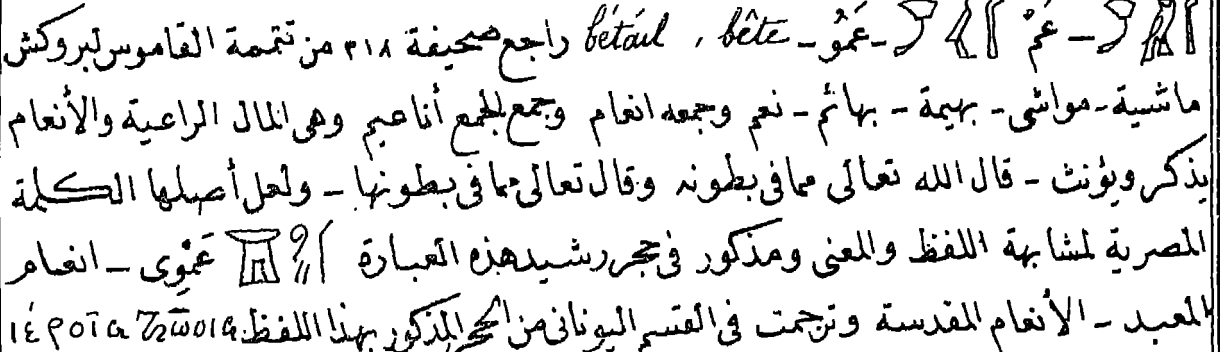 - عَمْ - عَمُو - bétail , bête راجع صحيفة ٣١٨ من تتمة القاموس لبروكش
ماشية - مواشى - بهيمة - بهائم - نعم وجمعه انعام وجمع الجمع أناعيم وهى المال الراعية والأنعام
يذكر ويؤنث - قال الله تعالى مما فى بطونه وقال تعالى مما فى بطونها - ولعل أصلها الكلمة
المصرية لمشابهة اللفظ والمعنى ومذكور فى حجر رشيد هذه العبارة عَمْوِى - انعام
المعبد - الأنعام المقدسة وترجمت فى القسم اليونانى من الحجر المذكور بهذا اللفظ